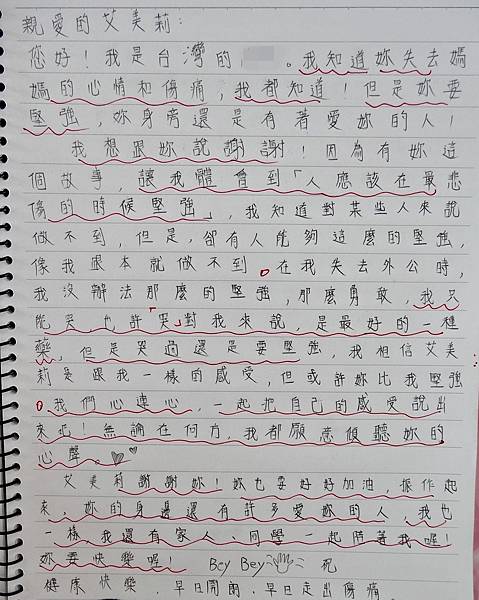 親愛的艾美莉：
您好！我是台灣的　　。我知道妳失去媽
媽的心情和傷痛，我都知道！但是妳要
堅強，妳身旁還是有著愛妳的人！
我想跟妳說謝謝！因為有妳這
個故事，讓我體會到「人應該在最悲
傷的時候堅強」，我知道對某些人來說
做不到，但是，卻有人能夠這麼的堅強，
像我跟本就做不到。在我失去外公時，
我沒辦法那麼的堅強，那麼勇敢，我只
能哭，也許「哭」對我來說，是最好的一種
藥，但是哭過還是要堅強，我相信艾美
莉是跟我一樣的感受，但或許妳比我堅強
。我們心連心，一起把自己的感受說出
來吧！無論在何方，我都願意傾聽妳的
心聲。♡♡
艾美莉謝謝妳！妳也要好好加油，振作起
來，妳的身邊還有許多愛妳的人，我也
一樣，我還有家人、同學一起陪著我喔！
妳要快樂喔！ Bey Bey 祝
健康快樂，早日開朗，早日走出傷痛。